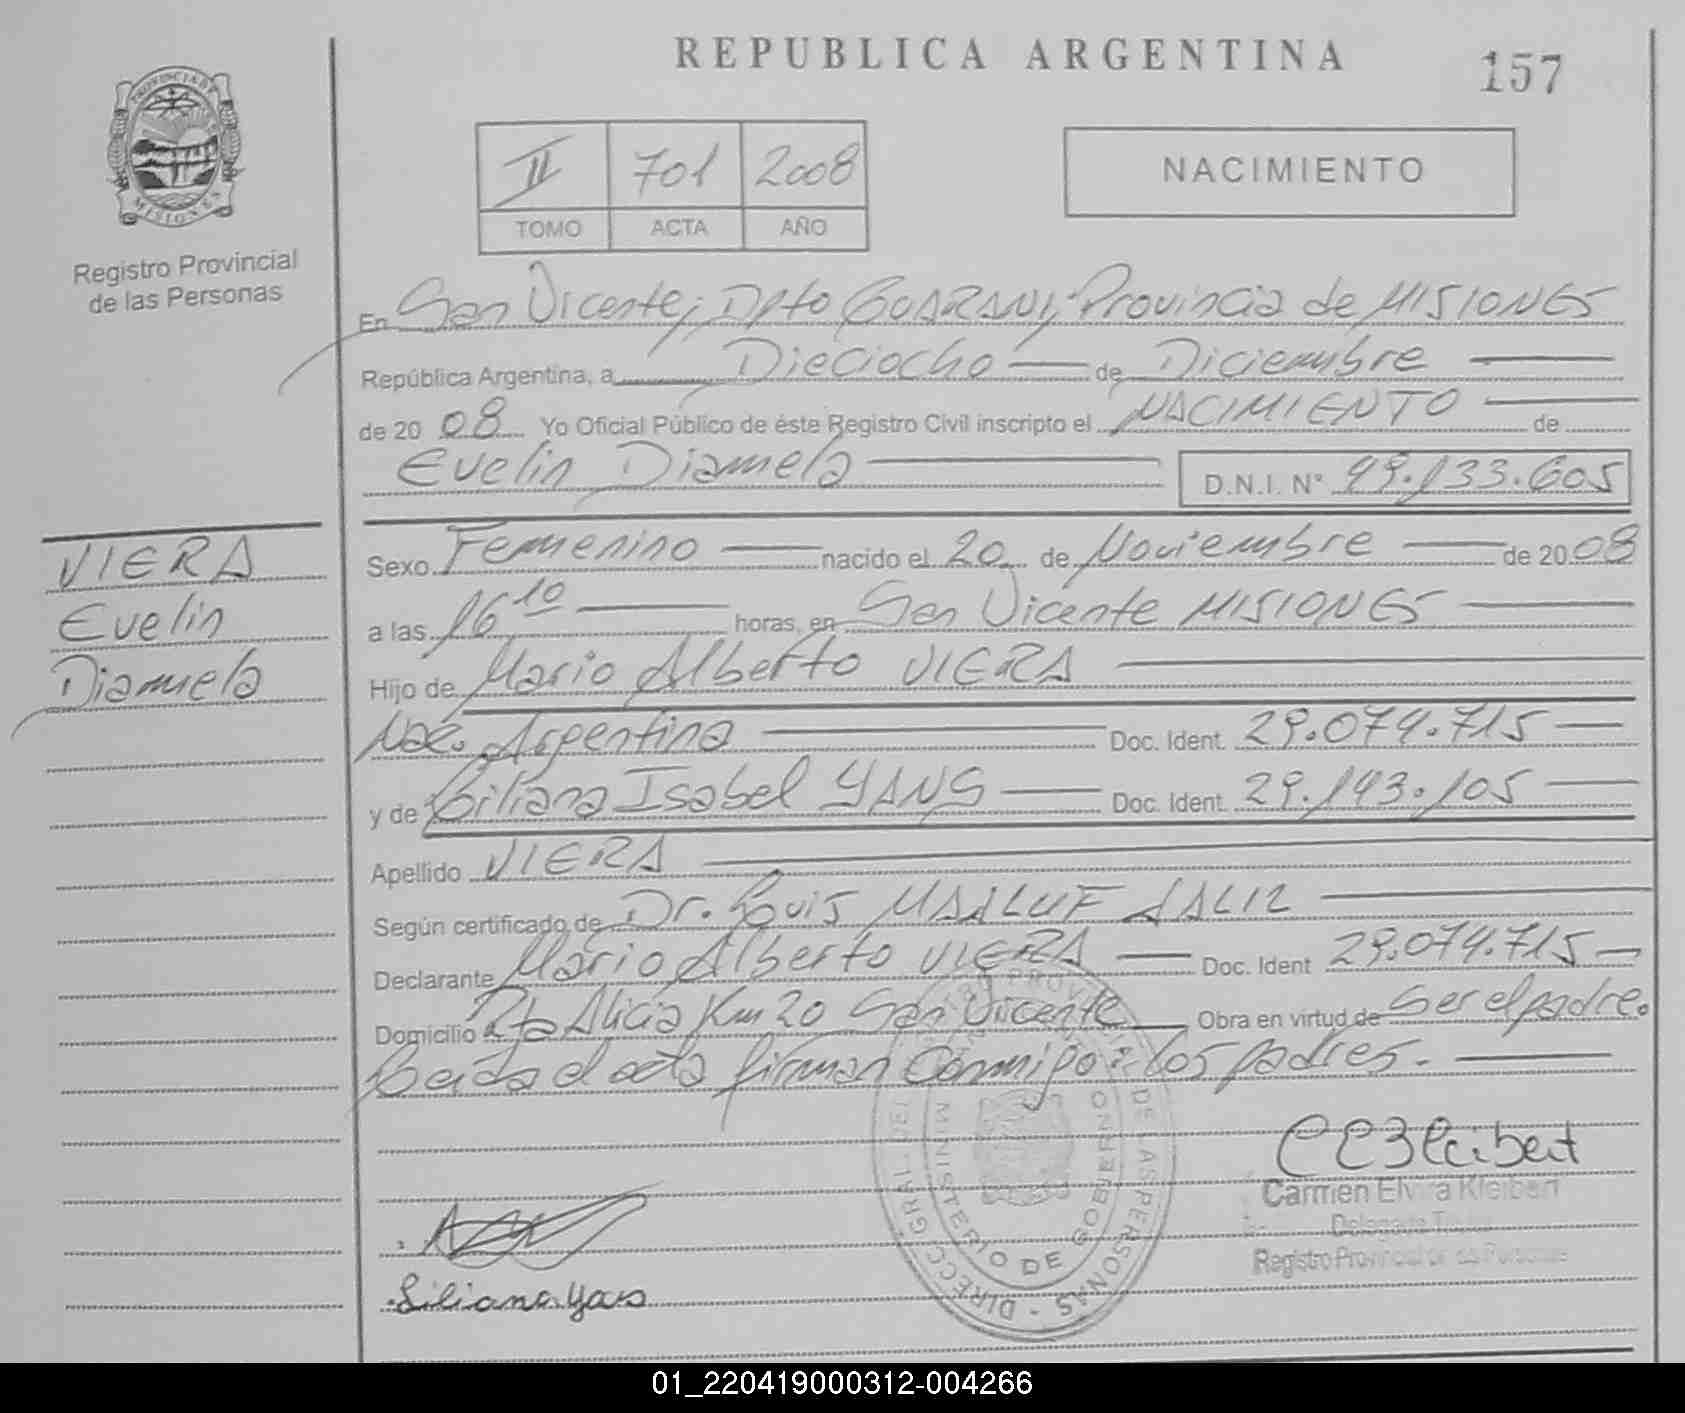 REPUBLICA ARGENTINA
157
PROVINCIA DE
MISIONES
Registro Provincial
de las Personas
II 701 2008
TOMO ACTA AÑO
NACIMIENTO
En San Vicente, Dpto GUARANI, Provincia de MISIONES
República Argentina, a Dieciocho de Diciembre
de 20 08 Yo Oficial Público de éste Registro Civil inscripto el NACIMIENTO de
Evelin Diamela D.N.I. Nº 49.133.605
VIERA
Evelin
Diamela
Sexo Femenino nacido el 20 de Noviembre de 2008
a las 16 10 horas, en San Vicente MISIONES
Hijo de Mario Alberto VIERA
Nac. Argentina Doc. Ident. 29.074.715
y de Liliana Isabel YANS Doc. Ident. 29.143.105
Apellido VIERA
Según certificado de Dr. Louis
Declarante Mario Alberto VIERA Doc. Ident 29.074.715
Domicilio Rta Alicia Km 20 San Vicente Obra en virtud de Ser el padre.
Leida el acta firman Conmigo: los padres.
Carmen Elvira Kleibert
Delegada Titular
Registro Provincial de las Personas
DIRECC. GRAL. DEL REGISTRO PROVINCIAL DE LAS PERSONAS
MINISTERIO DE GOBIERNO
Liliana Yans
01_220419000312-004266